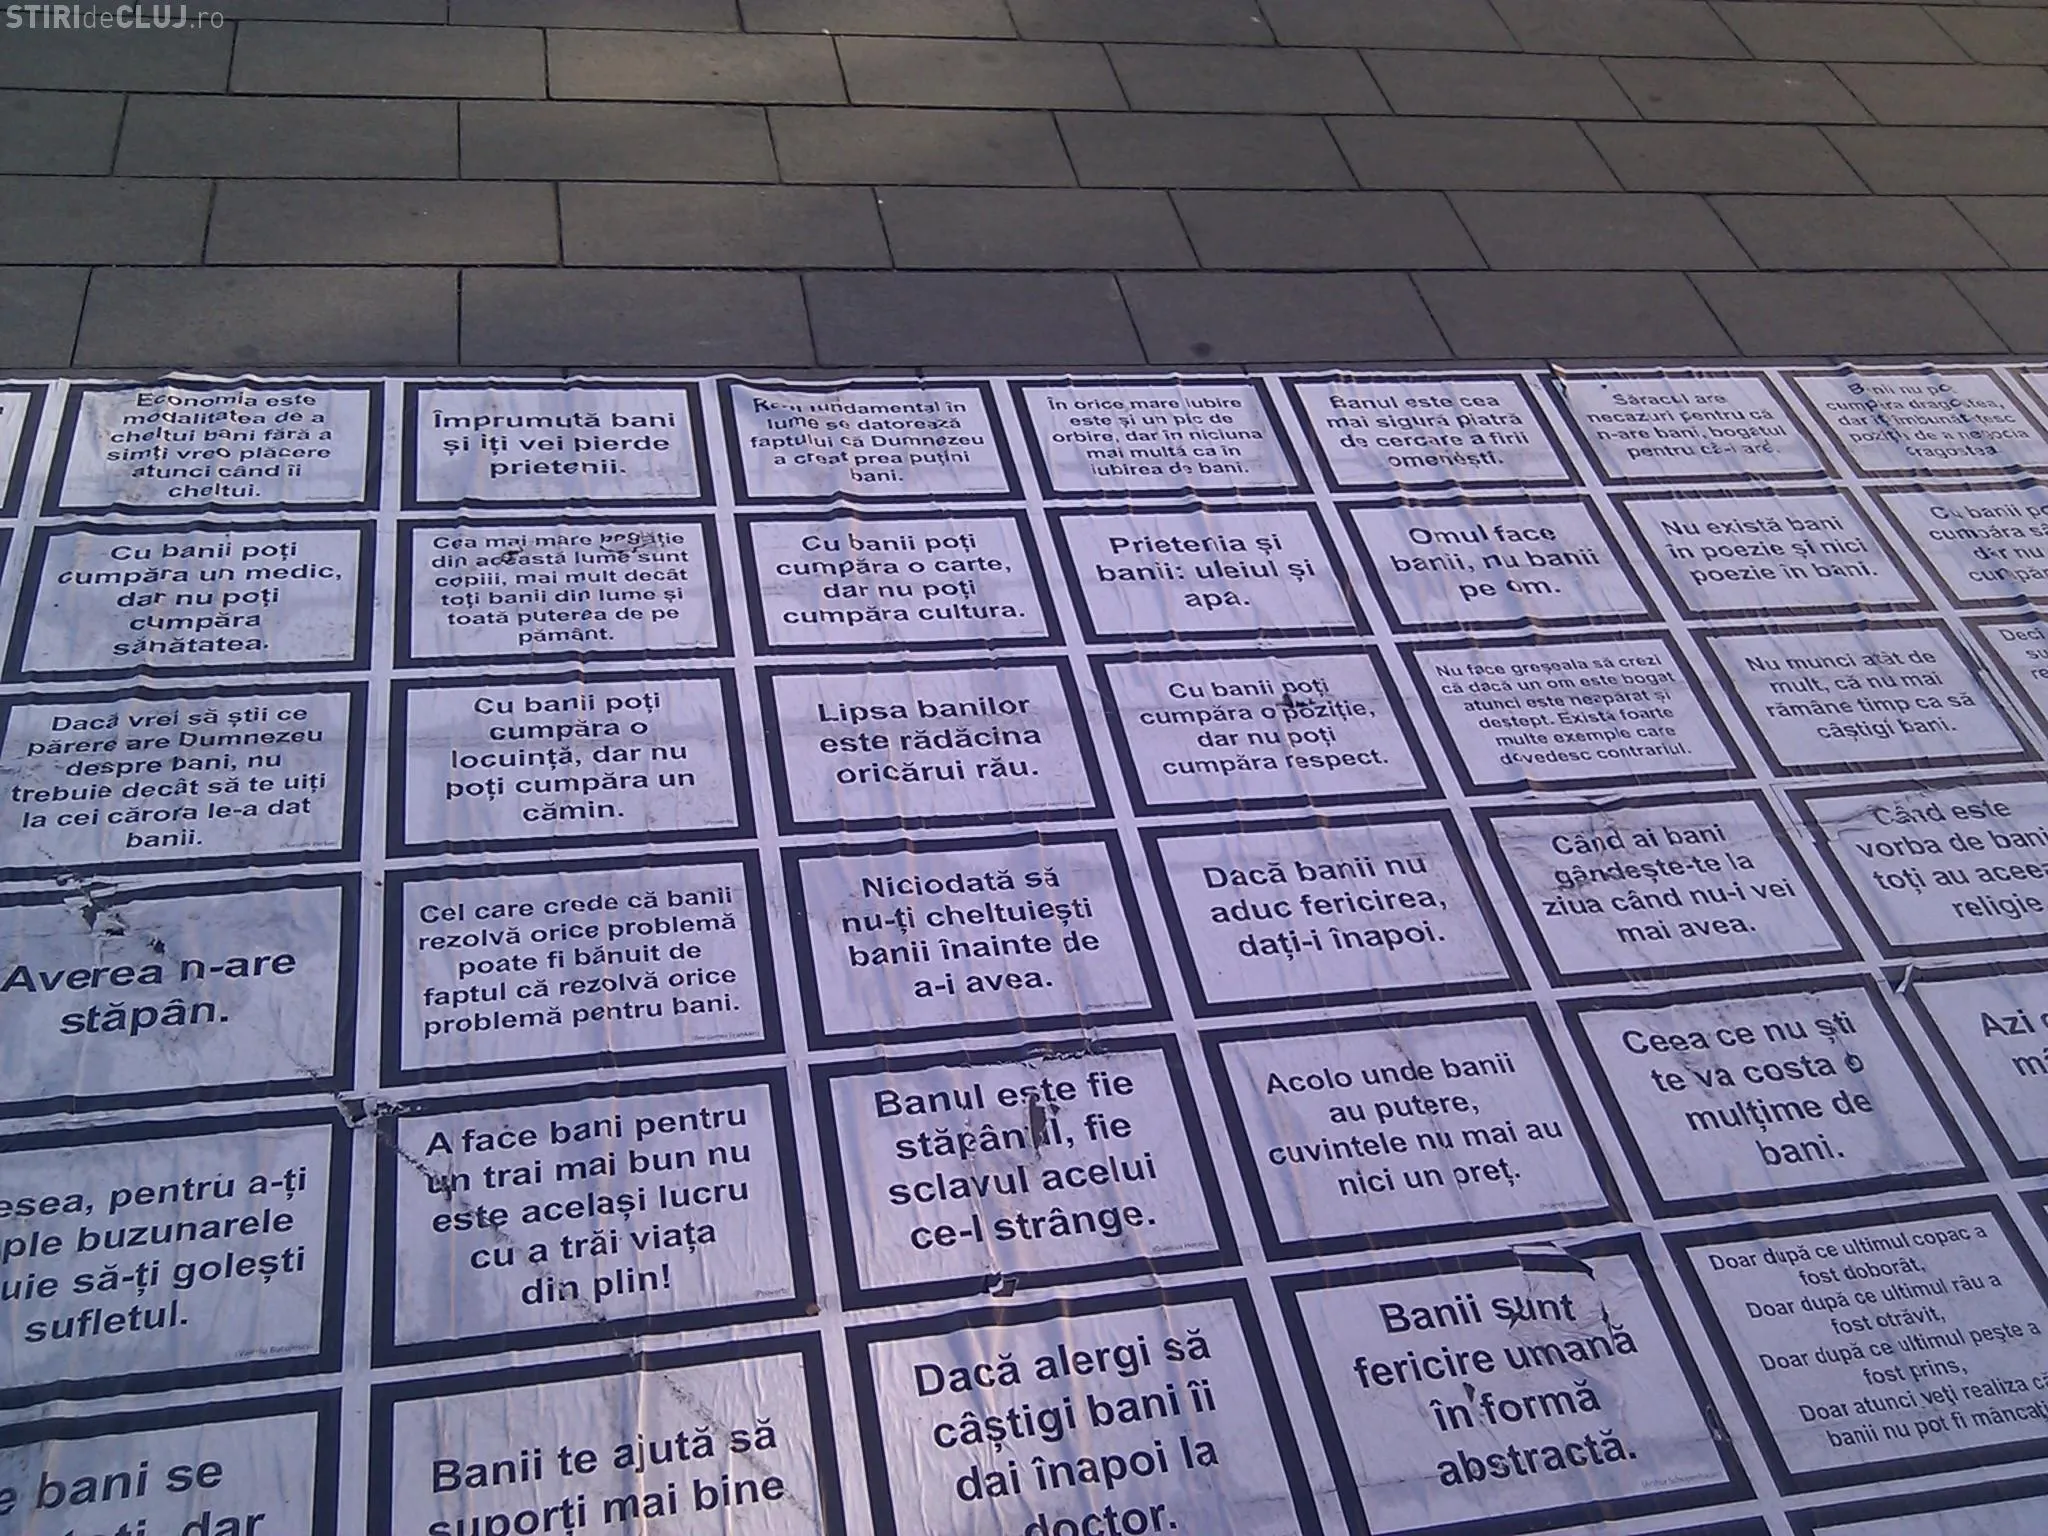 STIRIdeCLUJ.ro
Economia este
modalitatea de a
cheltui bani fără a
simți vreo plăcere
atunci când îi
cheltui.
Împrumută bani
și îți vei pierde
prietenii.
fundamental în
lume se datorează
faptului că Dumnezeu
a creat prea puțini
bani.
În orice mare iubire
este și un pic de
orbire, dar în niciuna
mai multă ca în
iubirea de bani.
Banul este cea
mai sigură piatră
de cercare a firii
omenești.
Săracul are
necazuri pentru că
n-are bani, bogatul
pentru că-i are.
Banii nu
cumpăra dragostea,
dar îți îmbunătățesc
poziția de a negocia
dragostea.
Cu banii poți
cumpăra un medic,
dar nu poți
cumpăra
sănătatea.
Cea mai mare bogăție
din această lume sunt
copiii, mai mult decât
toți banii din lume și
toată puterea de pe
pământ.
Cu banii poți
cumpăra o carte,
dar nu poți
cumpăra cultura.
Prietenia și
banii: uleiul și
apa.
Omul face
banii, nu banii
pe om.
Nu există bani
în poezie și nici
poezie în bani.
Cu banii
cumpăra
dar nu
Dacă vrei să știi ce
părere are Dumnezeu
despre bani, nu
trebuie decât să te uiți
la cei cărora le-a dat
banii.
Cu banii poți
cumpăra o
locuință, dar nu
poți cumpăra un
cămin.
Lipsa banilor
este rădăcina
oricărui rău.
Cu banii poți
cumpăra o poziție,
dar nu poți
cumpăra respect.
Nu face greșeala să crezi
că dacă un om este bogat
atunci este neapărat și
deștept. Există foarte
multe exemple care
dovedesc contrariul.
Nu munci atât de
mult, că nu mai
rămâne timp ca să
câștigi bani.
Deci
Averea n-are
stăpân.
Cel care crede că banii
rezolvă orice problemă
poate fi bănuit de
faptul că rezolvă orice
problemă pentru bani.
Niciodată să
nu-ți cheltuiești
banii înainte de
a-i avea.
Dacă banii nu
aduc fericirea,
dați-i înapoi.
Când ai bani
gândește-te la
ziua când nu-i vei
mai avea.
Când este
vorba de bani
toți au aceea
religie
esea, pentru a-ți
ple buzunarele
uie să-ți golești
sufletul.
A face bani pentru
un trai mai bun nu
este același lucru
cu a trăi viața
din plin!
(Proverb)
Banul este fie
stăpânul, fie
sclavul acelui
ce-l strânge.
Acolo unde banii
au putere,
cuvintele nu mai au
nici un preț.
Ceea ce nu ști
te va costa o
mulțime de
bani.
Azi
bani se
dar
Banii te ajută să
suporți mai bine
Dacă alergi să
câștigi bani îi
dai înapoi la
doctor.
Banii sunt
fericire umană
în formă
abstractă.
(Arthur Schopenhauer)
Doar după ce ultimul copac a
fost doborât,
Doar după ce ultimul râu a
fost otrăvit,
Doar după ce ultimul pește a
fost prins,
Doar atunci veți realiza că
banii nu pot fi mâncați